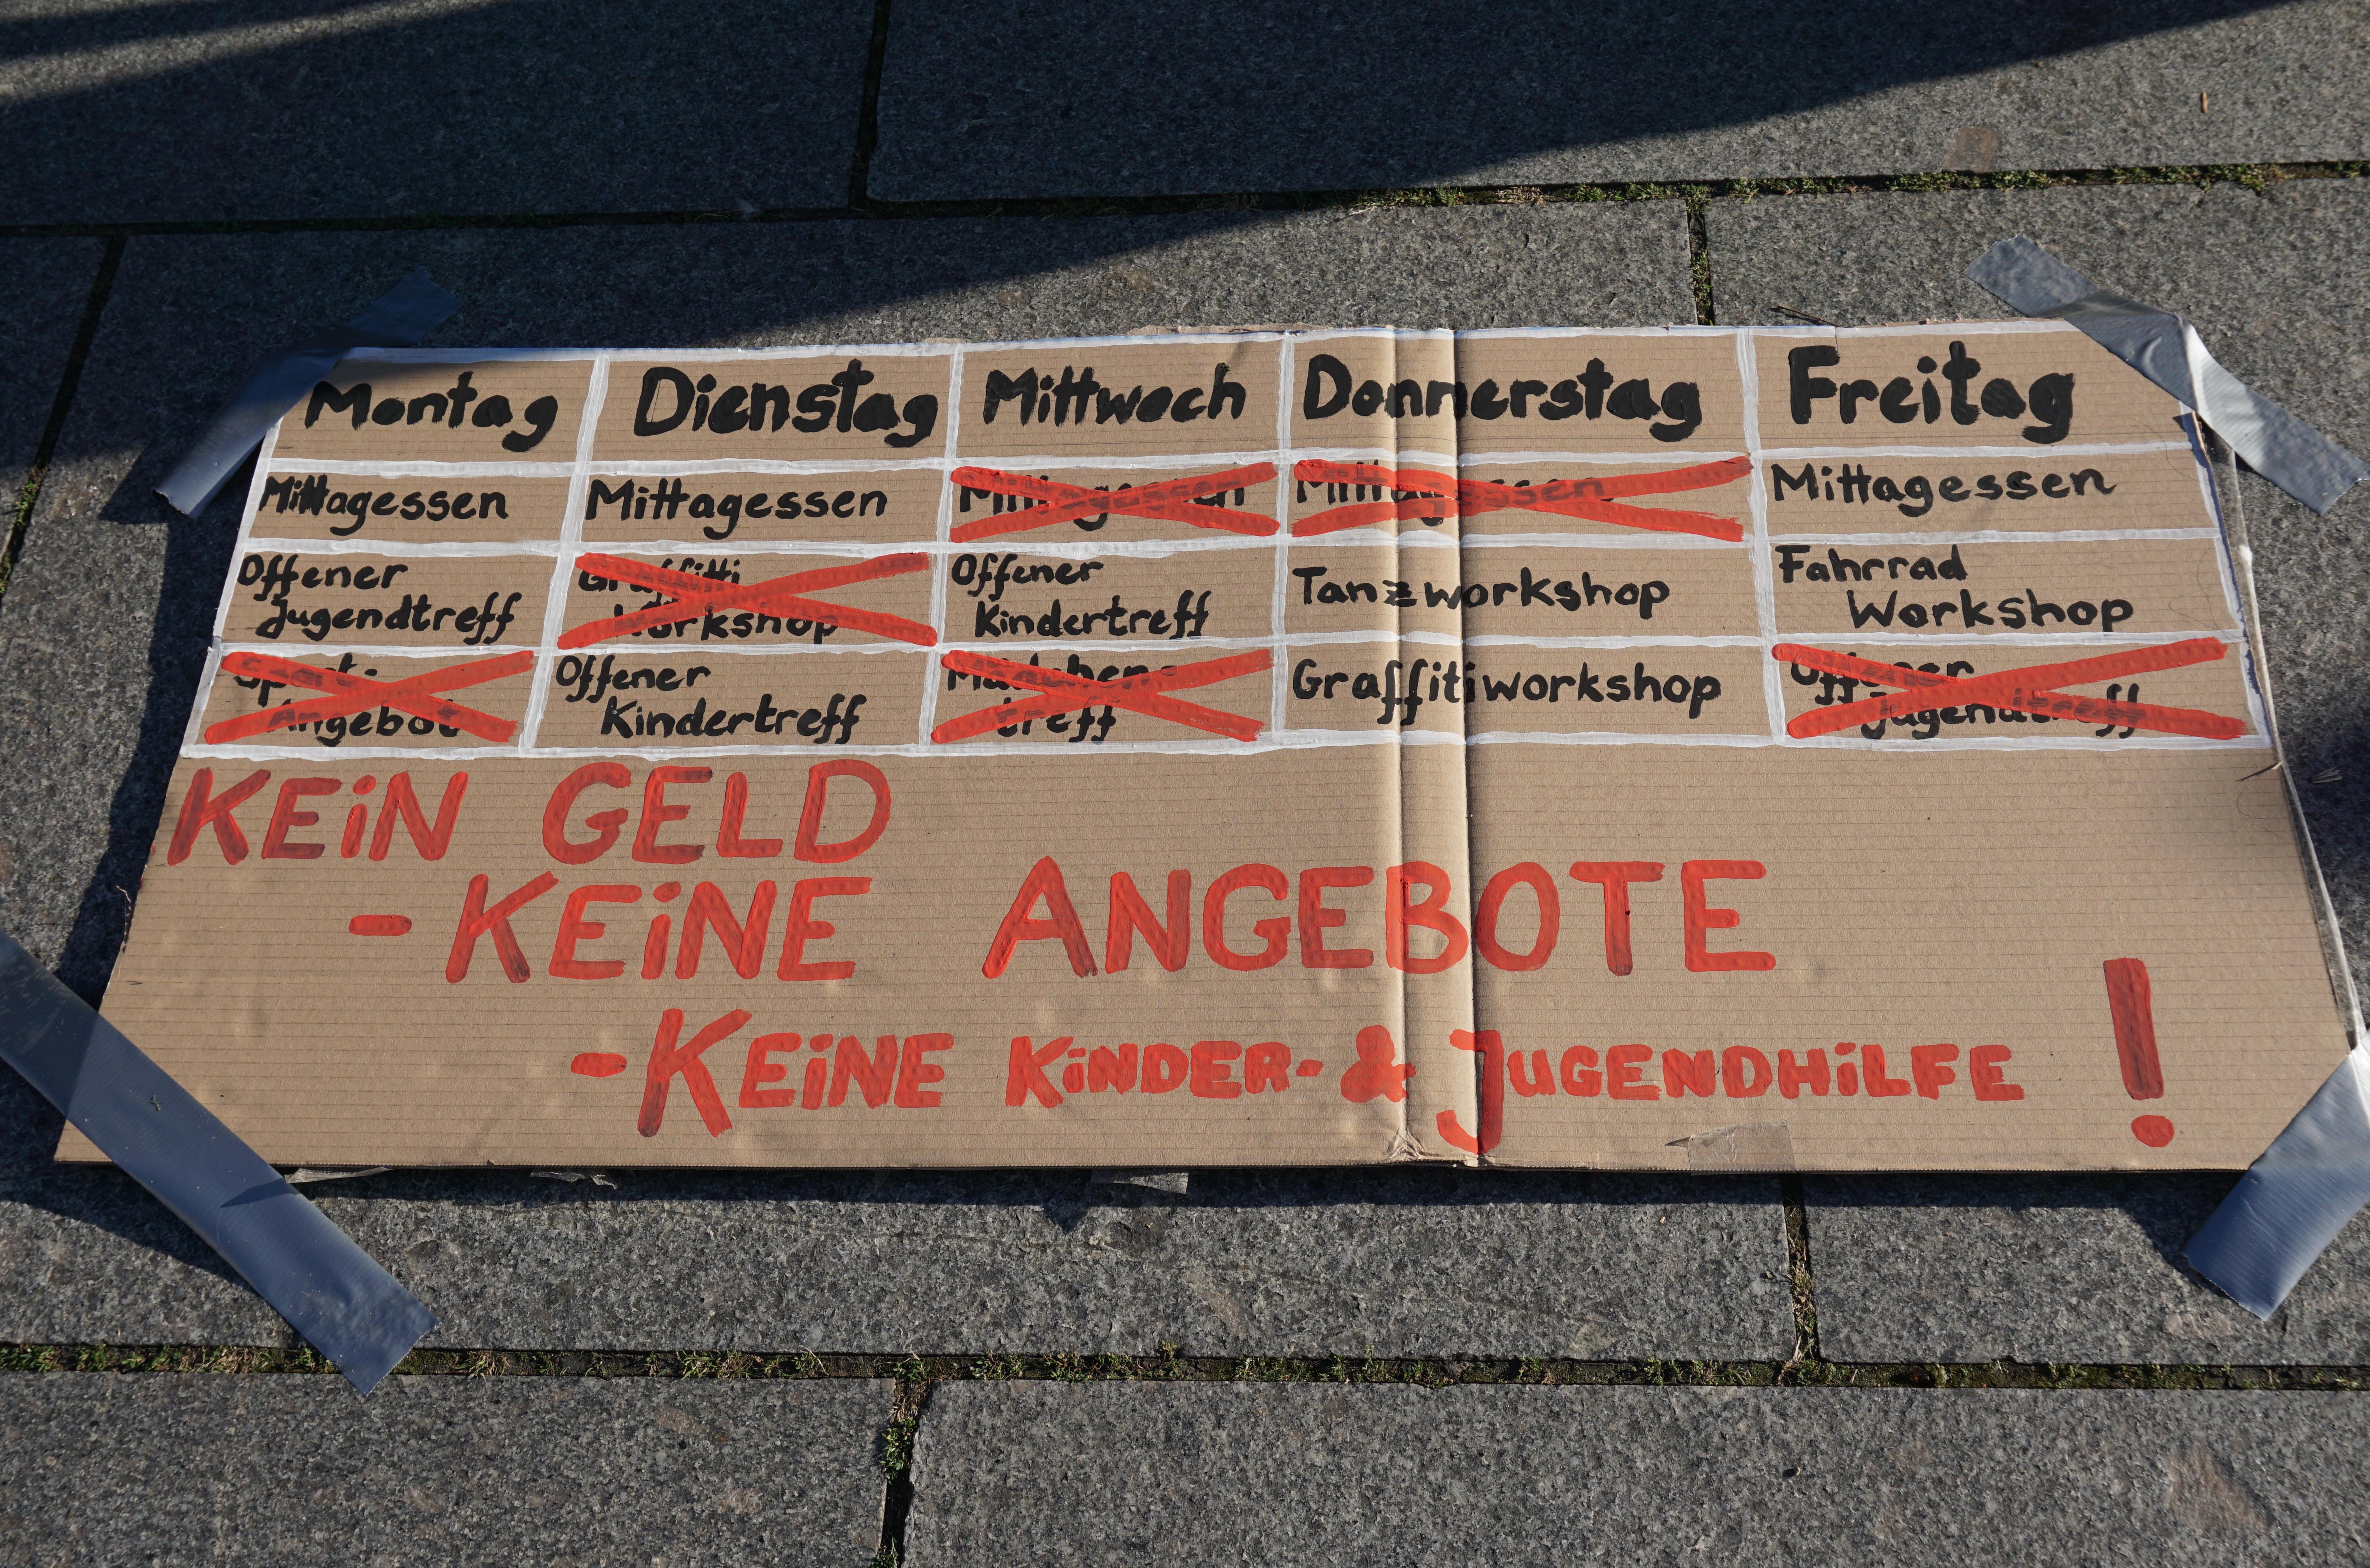 Montag Dienstag Mittwoch Donnerstag Freitag
Mittagessen Mittagessen Mittagessen Mittagessen Mittagessen
Offener Graffiti Offener Tanzworkshop Fahrrad
Jugendtreff Workshop Kindertreff Workshop
Sport- Offener Mädchen- Graffitiworkshop Offener
Angebot Kindertreff treff Jugendtreff
KEiN GELD
- KEiNE ANGEBOTE
- KEiNE KiNDER- & JUGENDHiLFE !